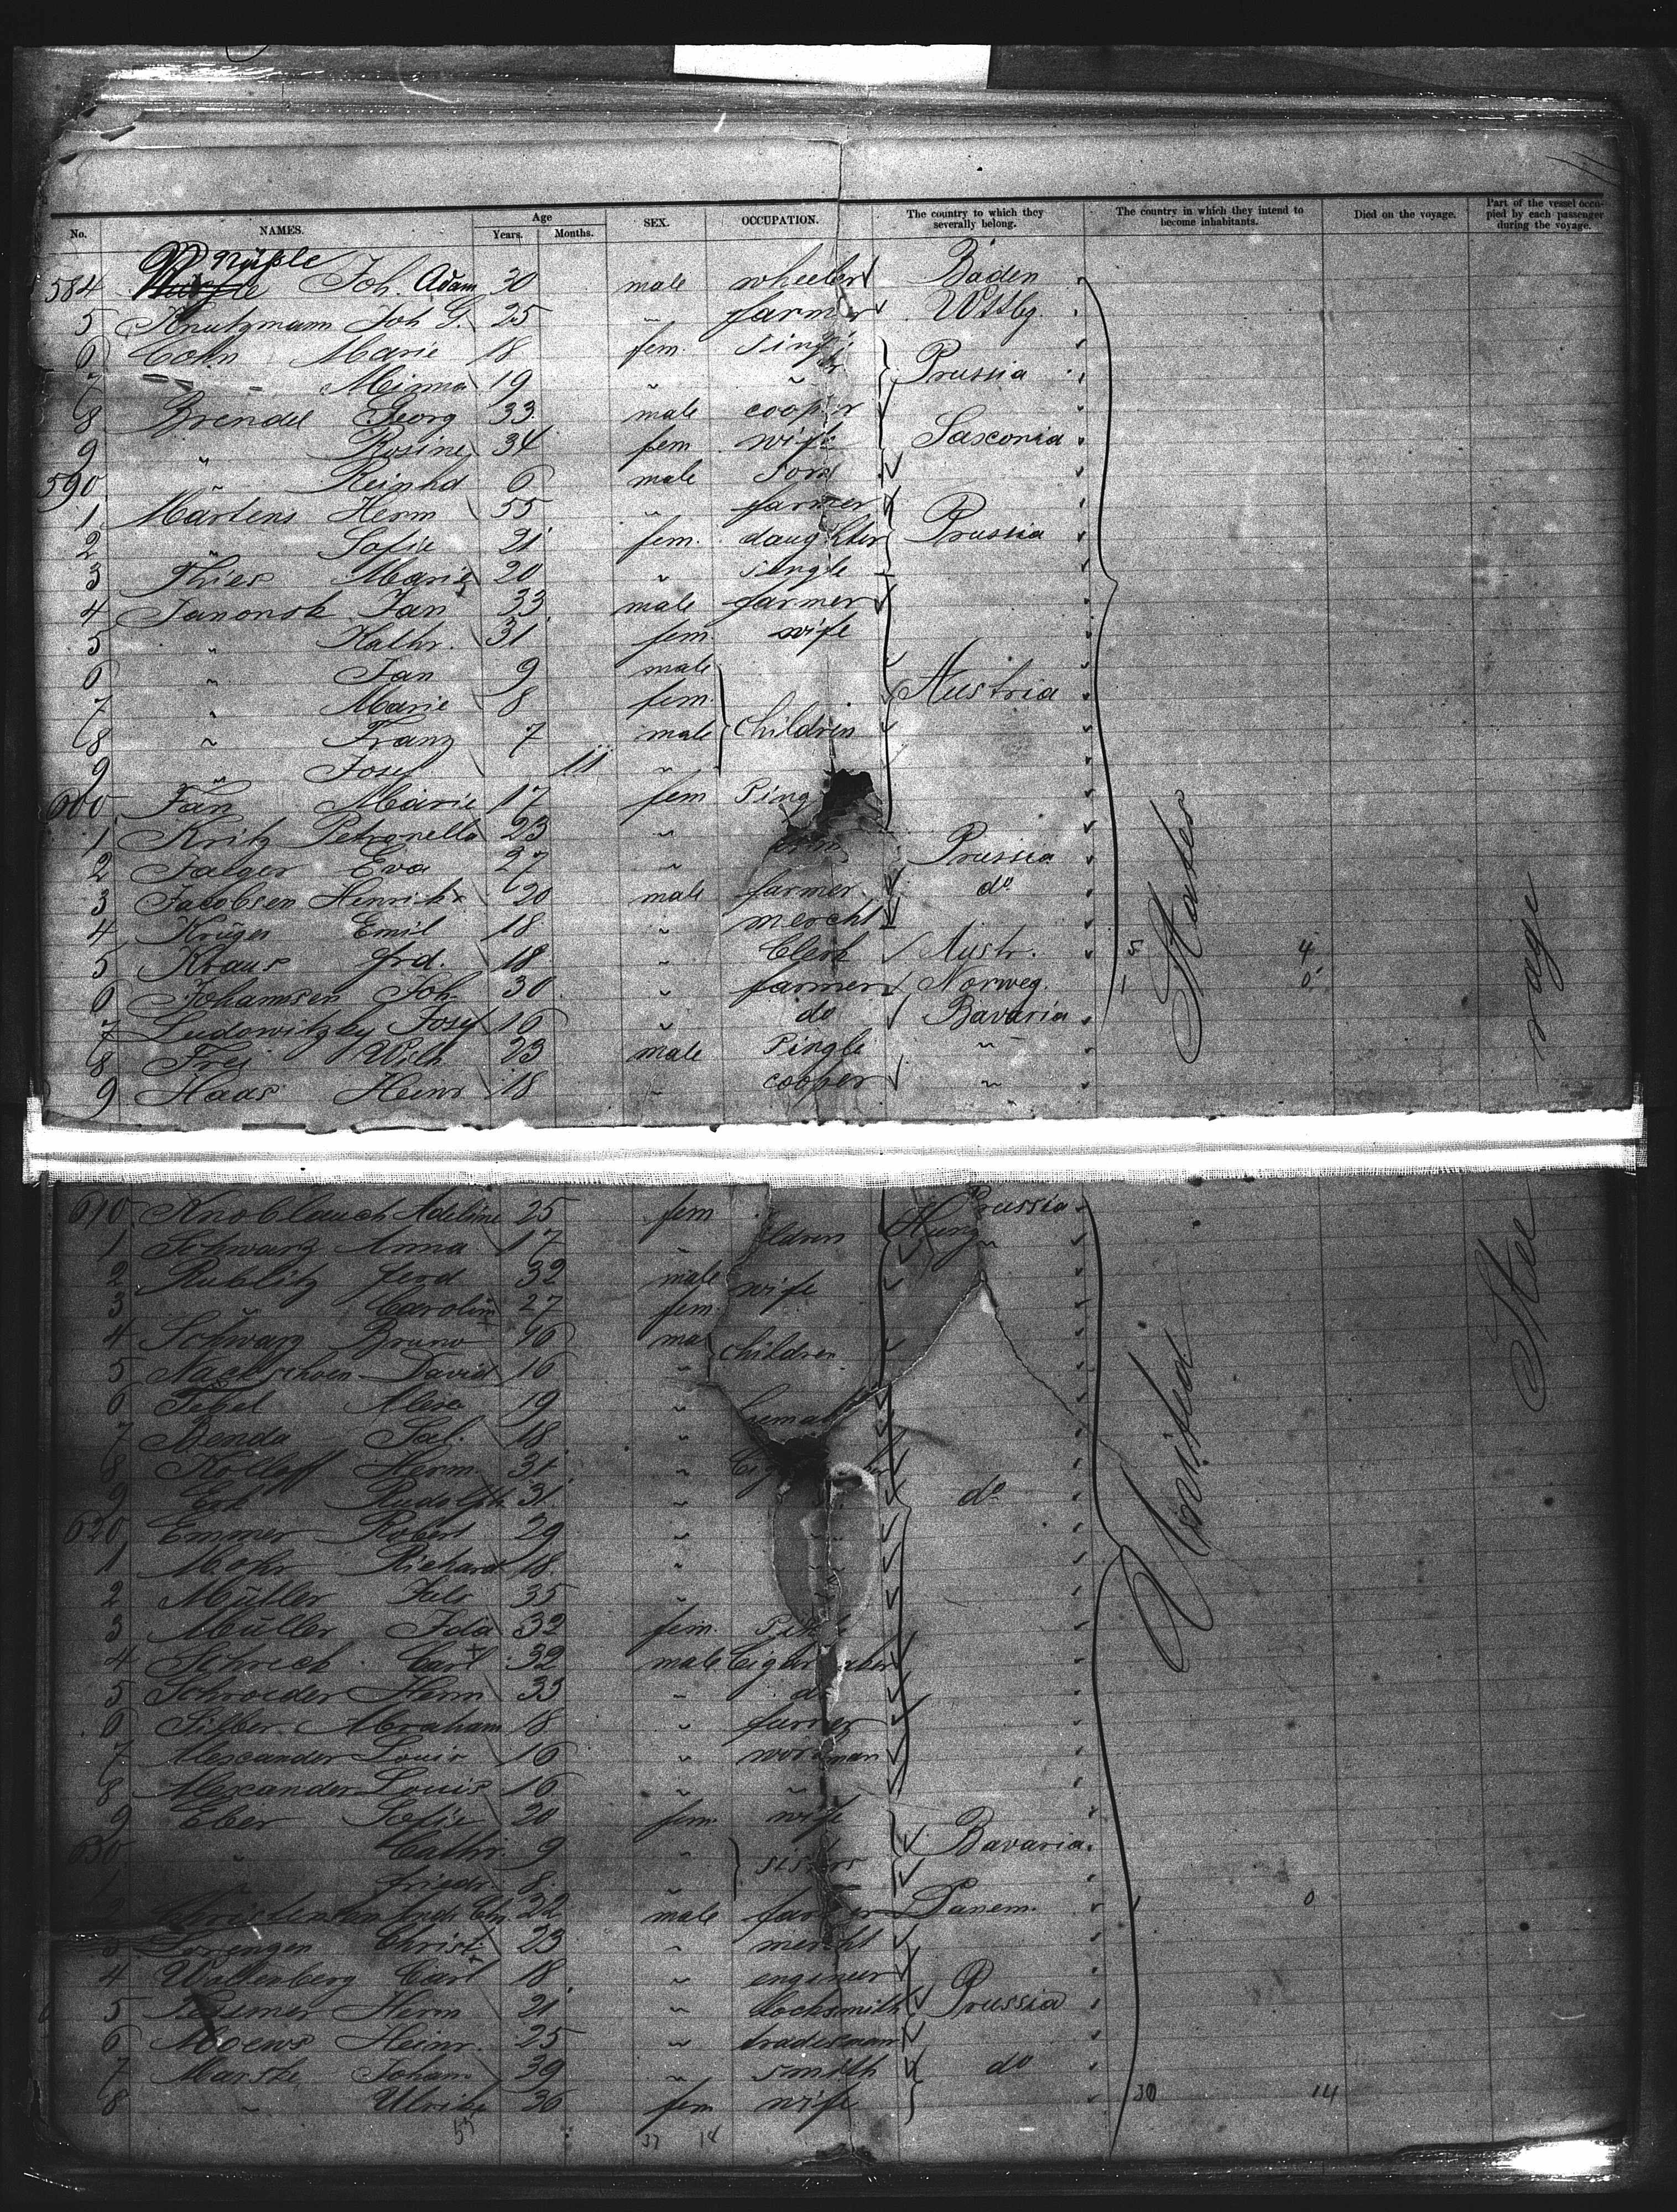 No. NAMES. Age Years. Months. SEX. OCCUPATION. The country to which they severally belong. The country in which they intend to become inhabitants. Died on the voyage. Part of the vessel occupied by each passenger during the voyage.
584 Joh. Adam 30 male wheeler Baden
5 Knutzmann Joh G. 25 " farmer Wttbg.
6 Cohn Marie 18 fem. Prussia
7 Minna 19 " "
8 Brendel Georg 33 male cooper
9 " Rosine 34 fem wife Saxonia
590 " Reinhd 6 male son
1 Martens Herm 55 " farmer
2 " Sofie 21 fem. daughter Prussia
3 Thies Marie 20 " single
4 Janonsk Jan 33 male farmer
5 " Kathr. 31 fem. wife
6 " Jan 9 male
7 " Marie 8 fem. Austria
8 " Franz 7 male children
9 " Josef 11 "
600 Marie 17 fem
1 Kritz Petronella 23 "
2 Jaeger Eva 27 " Prussia
3 Jacobsen Henrik 20 male farmer do
4 Krüger Emil 18 " mercht
5 Kraus frd. 18 " Clerk Austr. 5 4
6 Johannsen Joh 30 " farmer Norweg. 1 0
7 Ludowitzky Josef 16 " do Bavaria
8 Frei Wilh 23 male single "
9 Haas Heinr 18 " cooper "
610 Knoblauch Adeline 25 fem Prussia
1 Schwarz Anna 17 " ldren Hung "
2 Rublitz ferd 32 male wife
3 " Carolin 27 fem.
4 Schwarz Bruno 16 children
5 Nackschoen David 16 "
6 Tebel Alex 19 "
7 Benda Sal. 18 "
8 Kolloff Herm 31 "
9 Erk Rudolph 31 " do
620 Emmer Robert 29 "
1 Mohr Richard 18 "
2 Müller Jule 35 "
3 Müller Ida 32 fem.
4 Schreck Carl 32 male
5 Schroeder Herm 33 " do
6 Silber Abraham 18 " furrer
7 Alexander Louis 16 " workman
8 Alexander Louis 16 " "
9 Eber Sofie 20 fem. wife
630 " Cathr. 9 " sisters Bavaria
1 friedr. 8 "
2 Christensen 22 male farmer Danem. 1 0
3 Sorengen Christ 23 " mercht
4 Wallenberg Carl 18 " engineer
5 Herm 21 " locksmith Prussia
6 Moews Heinr. 25 " tradesman
7 Marske Johann 39 " smith do
8 " Ulrike 36 fem wife 30 14
37 14
United States
Steerage